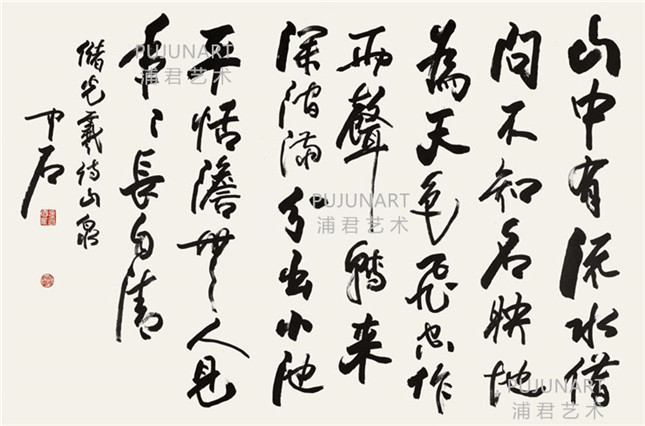 山中有流水借
問不知名映地
為天色飛空作
雨聲轉来
深澗滿分出小池
平恬澹無人見
年〻長自清
儲光羲诗山泉
中石
PUJUNART
浦君艺术
PUJUNART
浦君艺术
PUJUNART
浦君艺术